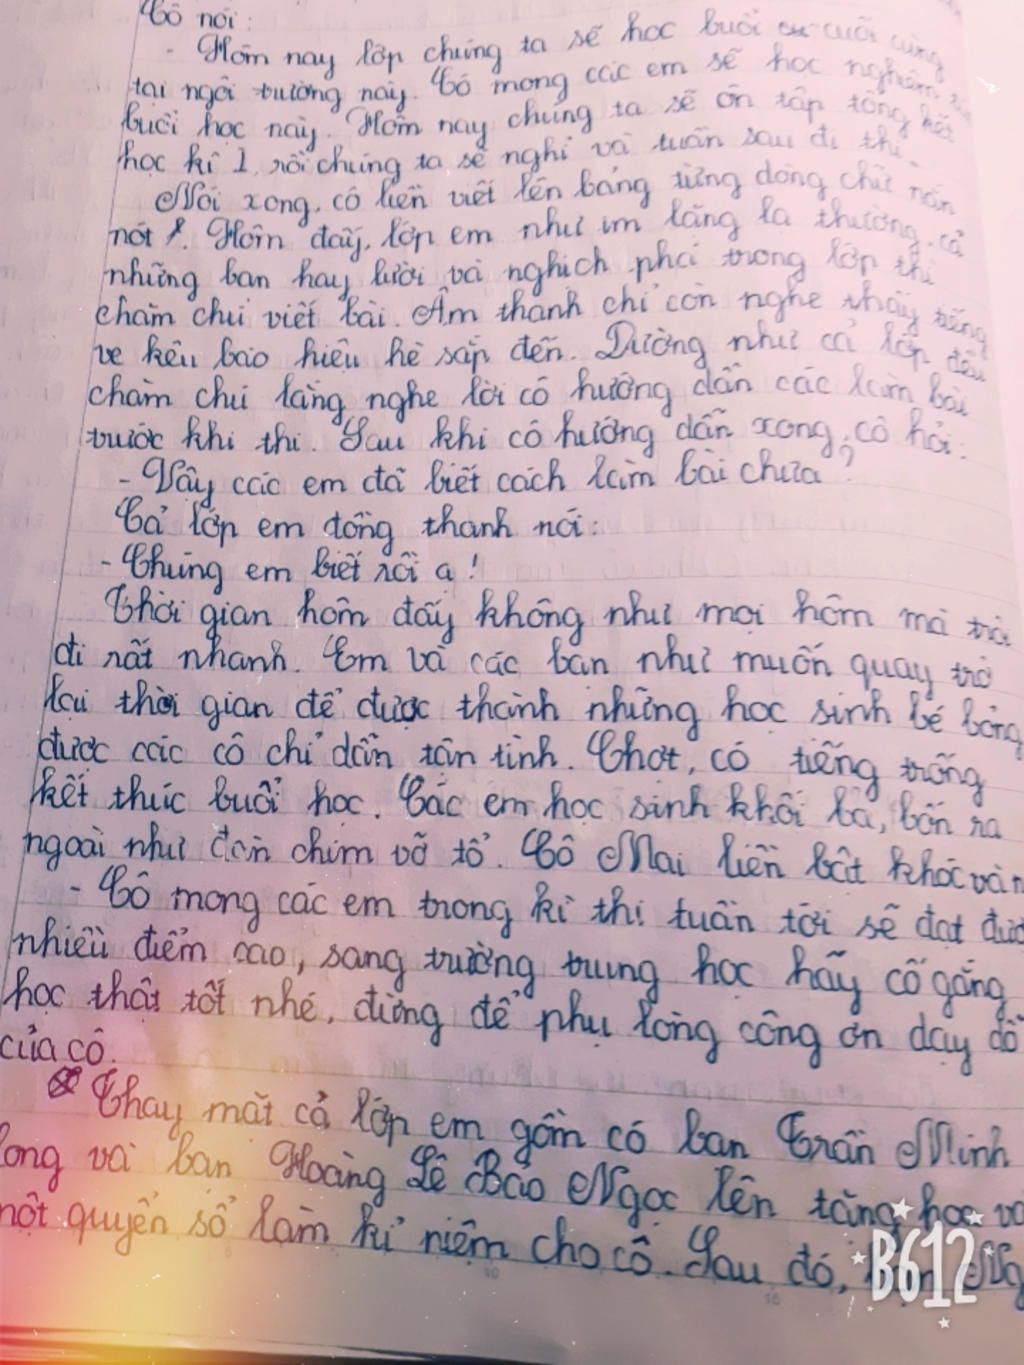 Cô nói:
- Hôm nay lớp chúng ta sẽ học buổi cuối cùng
tại ngôi trường này. Cô mong các em sẽ học nghiêm
buổi học này. Hôm nay chúng ta sẽ ôn tập tổng kết
học kì 1, rồi chúng ta sẽ nghỉ và tuần sau đi thi.
Nói xong, cô liền viết lên bảng từng dòng chữ nắn
nót. Hôm đấy, lớp em như im lặng lạ thường, cả
những bạn hay lười và nghịch phá trong lớp thì
chăm chú viết bài. Âm thanh chỉ còn nghe thấy tiếng
ve kêu báo hiệu hè sắp đến. Dường như cả lớp đều
chăm chú lắng nghe lời cô hướng dẫn các làm bài
trước khi thi. Sau khi cô hướng dẫn xong, cô hỏi:
- Vậy các em đã biết cách làm bài chưa?
Cả lớp em đồng thanh nói:
- Chúng em biết rồi ạ!
Thời gian hôm đấy không như mọi hôm mà trôi
đi rất nhanh. Em và các bạn như muốn quay trở
lại thời gian để được thành những học sinh bé bỏng
được các cô chỉ dẫn tận tình. Chợt, có tiếng trống
kết thúc buổi học. Các em học sinh khối ba, bốn ra
ngoài như đàn chim vỡ tổ. Cô Mai liền bật khóc và n
- Cô mong các em trong kì thi tuần tới sẽ đạt đượ
nhiều điểm cao, sang trường trung học hãy cố gắng
học thật tốt nhé, đừng để phụ lòng công ơn dạy dỗ
của cô.
Thay mặt cả lớp em gồm có bạn Trần Minh
Long và bạn Hoàng Lê Bảo Ngọc lên tặng hoa và
một quyển sổ làm kỉ niệm cho cô. Sau đó, bạn Ng
B612